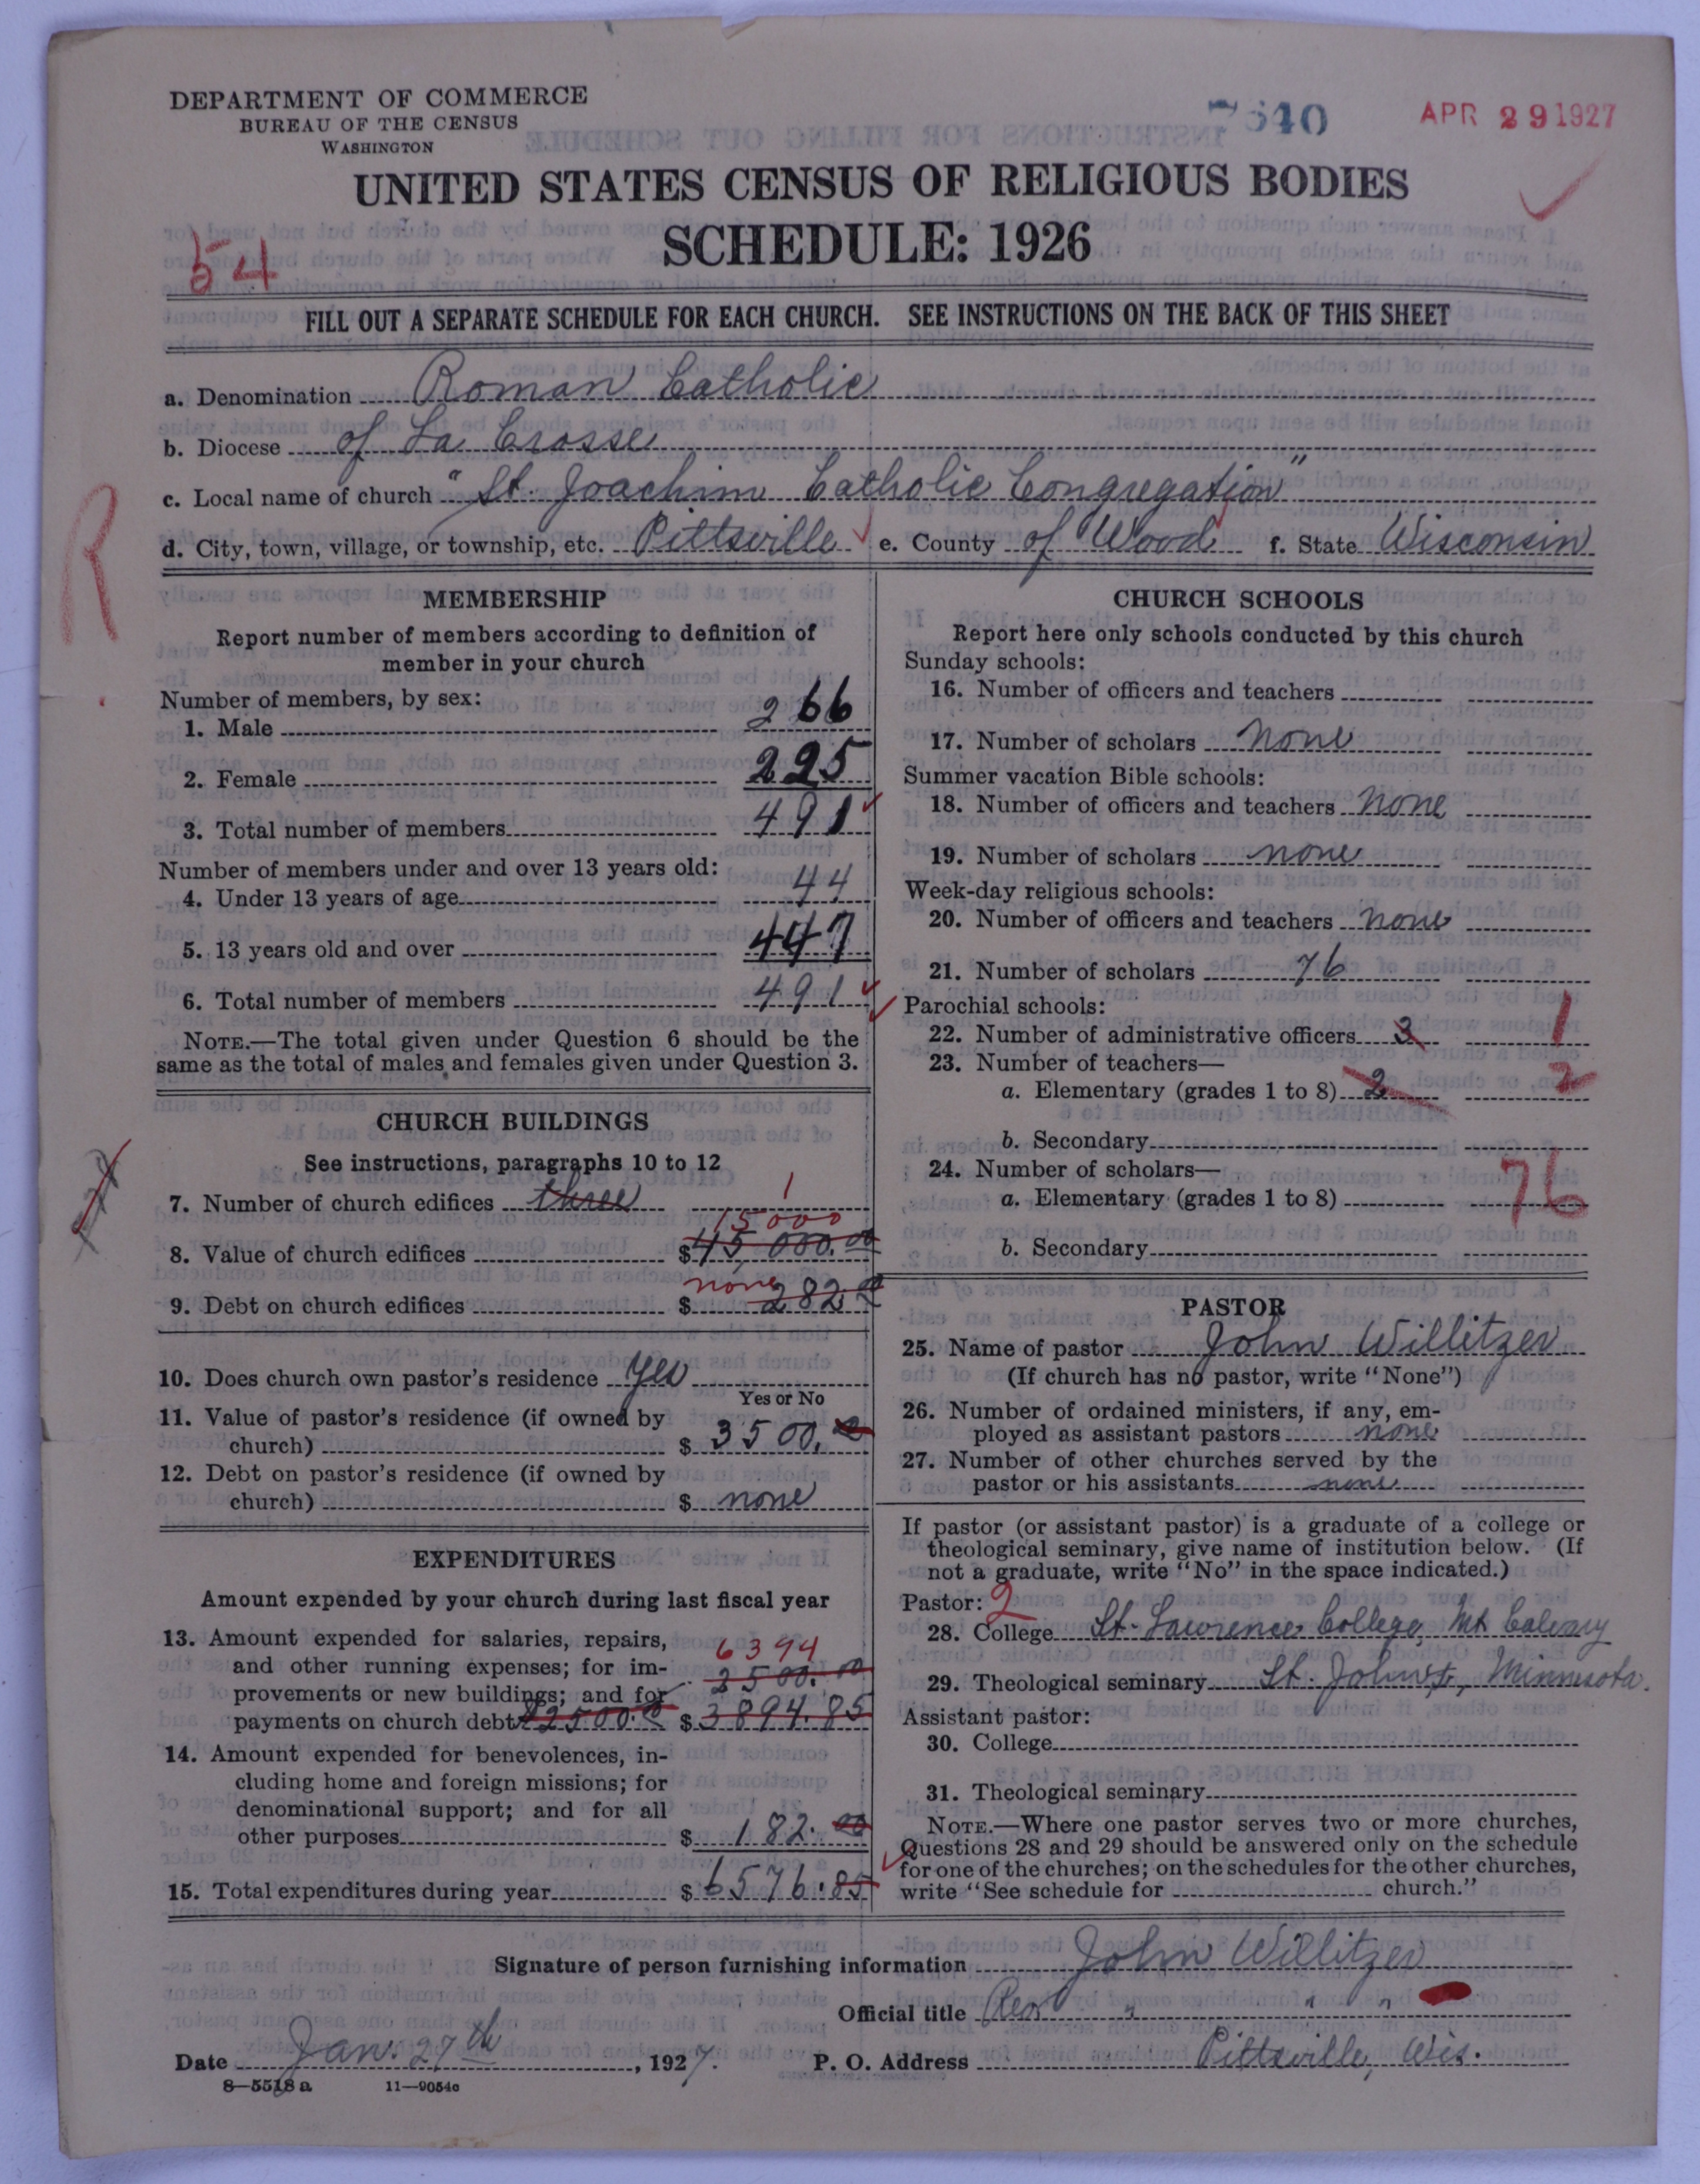 DEPARTMENT OF COMMERCE
BUREAU OF THE CENSUS
WASHINGTON
APR 29 1927
UNITED STATES CENSUS OF RELIGIOUS BODIES
SCHEDULE: 1926
54
FILL OUT A SEPARATE SCHEDULE FOR EACH CHURCH. SEE INSTRUCTIONS ON THE BACK OF THIS SHEET
a. Denomination Roman Catholic
b. Diocese of La Crosse
c. Local name of church "St. Joachim Catholic Congregation"
d. City, town, village, or township, etc. Pittsville e. County of Wood f. State Wisconsin
R
MEMBERSHIP
Report number of members according to definition of
member in your church
Number of members, by sex:
1. Male 266
2. Female 225
3. Total number of members 491
Number of members under and over 13 years old:
4. Under 13 years of age 44
5. 13 years old and over 447
6. Total number of members 491
NOTE.—The total given under Question 6 should be the
same as the total of males and females given under Question 3.
CHURCH BUILDINGS
See instructions, paragraphs 10 to 12
7. Number of church edifices three 1
15000
8. Value of church edifices $45,000.00
9. Debt on church edifices $ none 282.00
10. Does church own pastor's residence Yes
Yes or No
11. Value of pastor's residence (if owned by
church) $ 3500.00
12. Debt on pastor's residence (if owned by
church) $ none
EXPENDITURES
Amount expended by your church during last fiscal year
13. Amount expended for salaries, repairs, 6394
and other running expenses; for im- 2500.00
provements or new buildings; and for
payments on church debt $2500.00 $ 3894.85
14. Amount expended for benevolences, in-
cluding home and foreign missions; for
denominational support; and for all
other purposes $ 182.00
15. Total expenditures during year $ 6576.85
CHURCH SCHOOLS
Report here only schools conducted by this church
Sunday schools:
16. Number of officers and teachers
17. Number of scholars none
Summer vacation Bible schools:
18. Number of officers and teachers none
19. Number of scholars none
Week-day religious schools:
20. Number of officers and teachers none
21. Number of scholars 76
Parochial schools:
22. Number of administrative officers 3 1
23. Number of teachers—
a. Elementary (grades 1 to 8) 2 2
b. Secondary
24. Number of scholars—
a. Elementary (grades 1 to 8) 76
b. Secondary
PASTOR
25. Name of pastor John Willitzer
(If church has no pastor, write "None")
26. Number of ordained ministers, if any, em-
ployed as assistant pastors none
27. Number of other churches served by the
pastor or his assistants none
If pastor (or assistant pastor) is a graduate of a college or
theological seminary, give name of institution below. (If
not a graduate, write "No" in the space indicated.)
Pastor: 2
28. College St. Lawrence College, Mt Calvary
29. Theological seminary St. John's, Minnesota.
Assistant pastor:
30. College
31. Theological seminary
NOTE.—Where one pastor serves two or more churches,
Questions 28 and 29 should be answered only on the schedule
for one of the churches; on the schedules for the other churches,
write "See schedule for church."
Signature of person furnishing information John Willitzer
Official title Rev. " " "
Date Jan. 27th, 1927. P. O. Address Pittsville, Wis.
8—5518 a 11—9054c